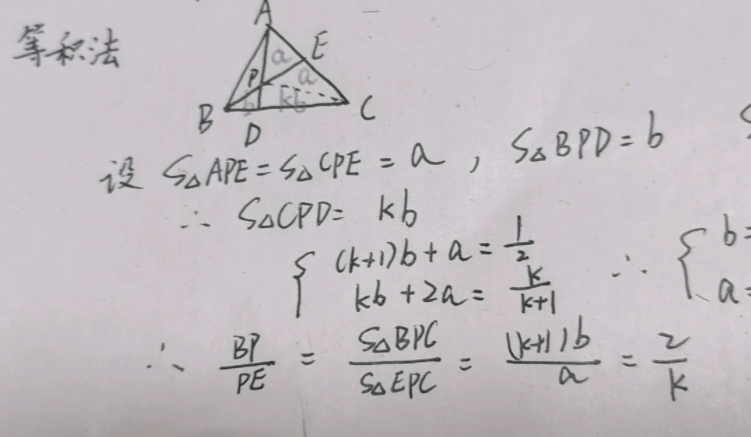 等积法
A
E
a
P
a
b
kb
B
D
C
设 S△APE=S△CPE=a, S△BPD=b
∴ S△CPD= kb
{ (k+1)b+a=1/2
kb+2a=k/(k+1)
∴ { b=
a=
∴ BP/PE = S△BPC/S△EPC = (k+1)b/a = 2/k